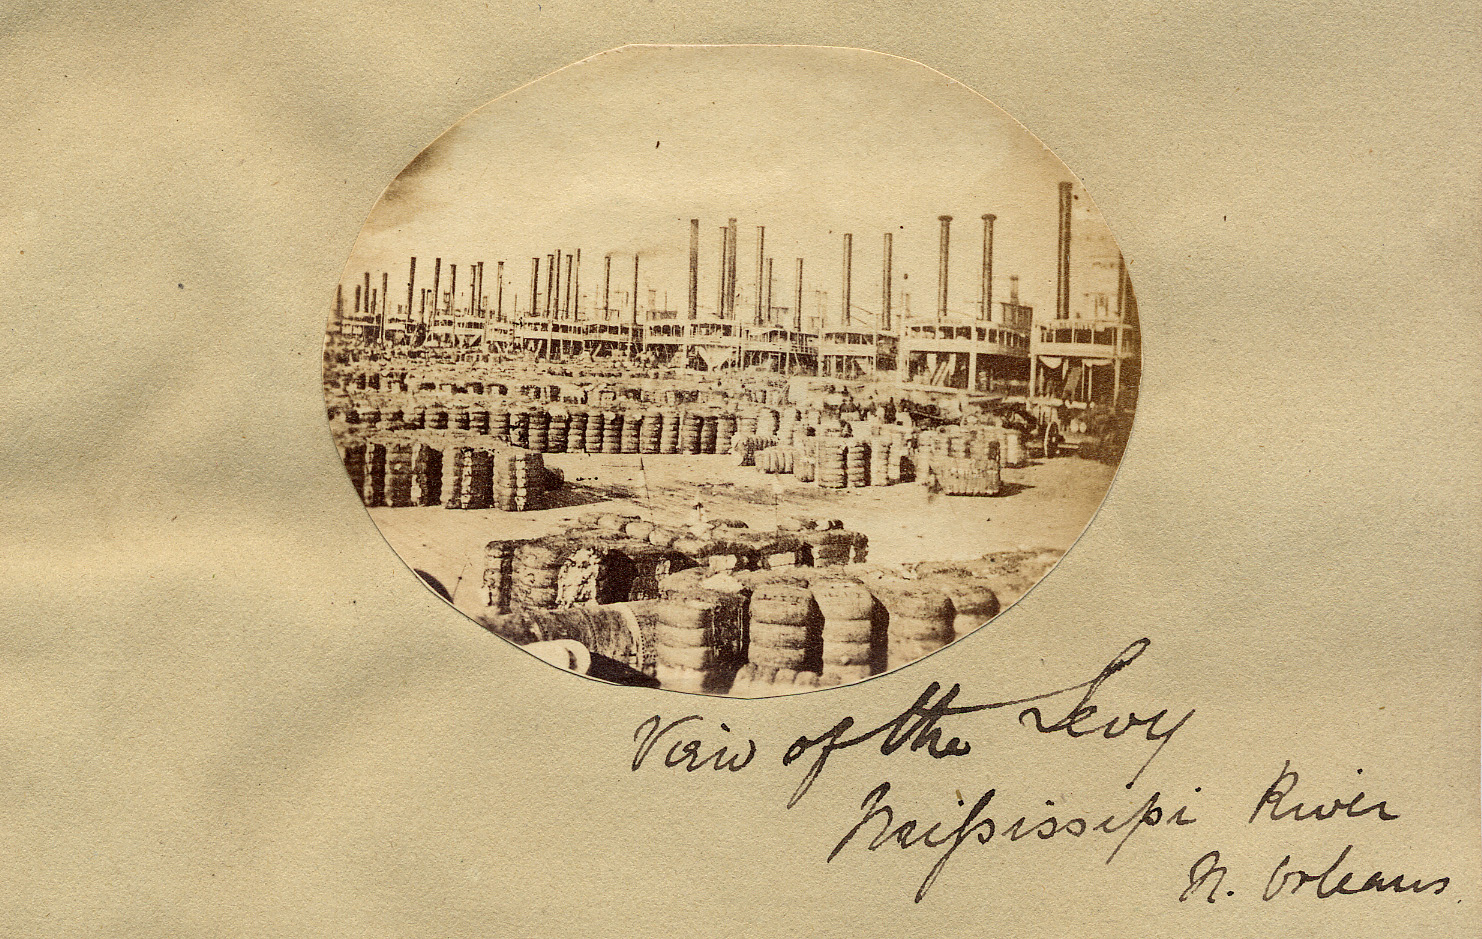 View of the Levy
Missisipi River
N. Orleans.